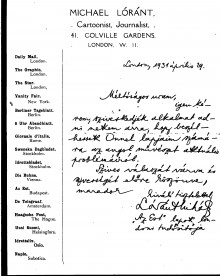 MICHAEL LÓRÁNT,
Cartoonist, Journalist,
41. COLVILLE GARDENS.
LONDON, W. 11.
London, 1931 április 29.
Daily Mail,
London.
The Graphic,
London.
The Star,
London.
Vanity Fair,
New York.
Berliner Tageblatt,
Berlin.
8 Uhr Abendblatt,
Berlin.
Giornale d'Italia,
Rome.
Svenska Dagbladet,
Stockholm.
Idrottsbladet,
Stockholm.
Die Bühne,
Vienna.
Az Est,
Budapest.
De Telegraaf,
Amsterdam.
Haagsche Post,
The Hague.
Uusi Suomi,
Helsingfors.
Idrettsliv,
Oslo.
Naplo,
Subotica.
Méltóságos uram,
igen
szíveskedjék alkalmat ad-
ni nekem arra, hogy beszél-
hessek Önnel lapjaim számá-
ra az angol művészet aktuális
problémáiról.
Szíves válaszát várva és
szívességét előre köszönve,
maradok
kiváló tisztelettel
Lóránt Mihály
"Az Est" lapok lon-
doni tudósítója